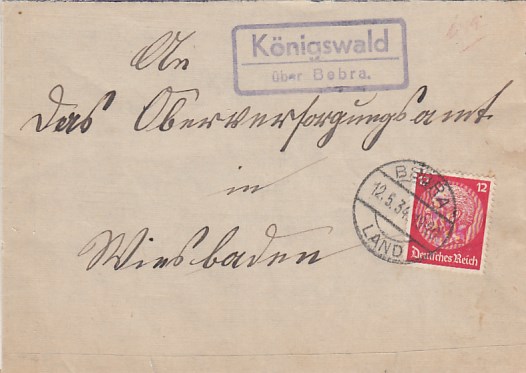 Königswald
über Bebra.
An
das Oberversorgungsamt
in
Wiesbaden
BEBRA
12.5.34.
LAND
12
Deutsches Reich